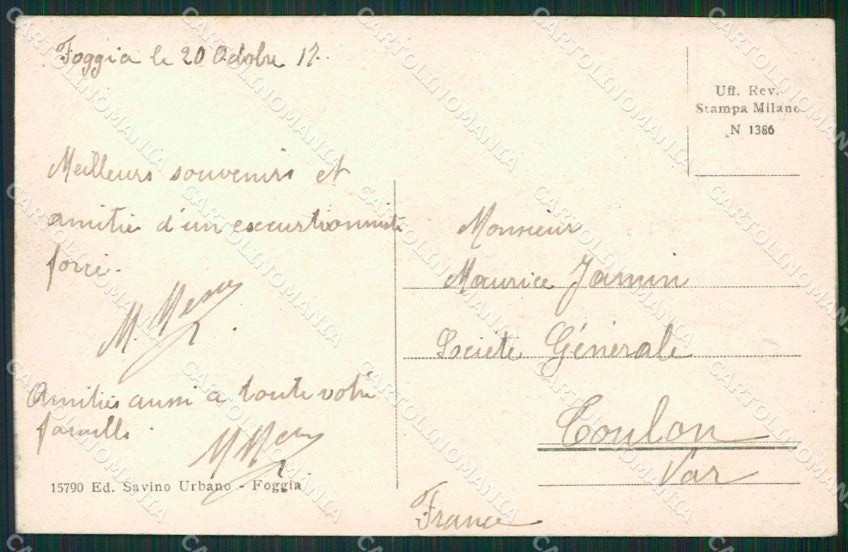 Foggia le 20 Octobre 17.
Uff. Rev.
Stampa Milano
N 1386
Meilleurs souvenirs et
amitié d'un excurtionniste
forcé.
Monsieur
Maurice Jamin
Société Générale
Toulon
Var
France
Amitiés aussi a toute votre
famille.
15790 Ed. Savino Urbano - Foggia
CARTOLINOMANIA